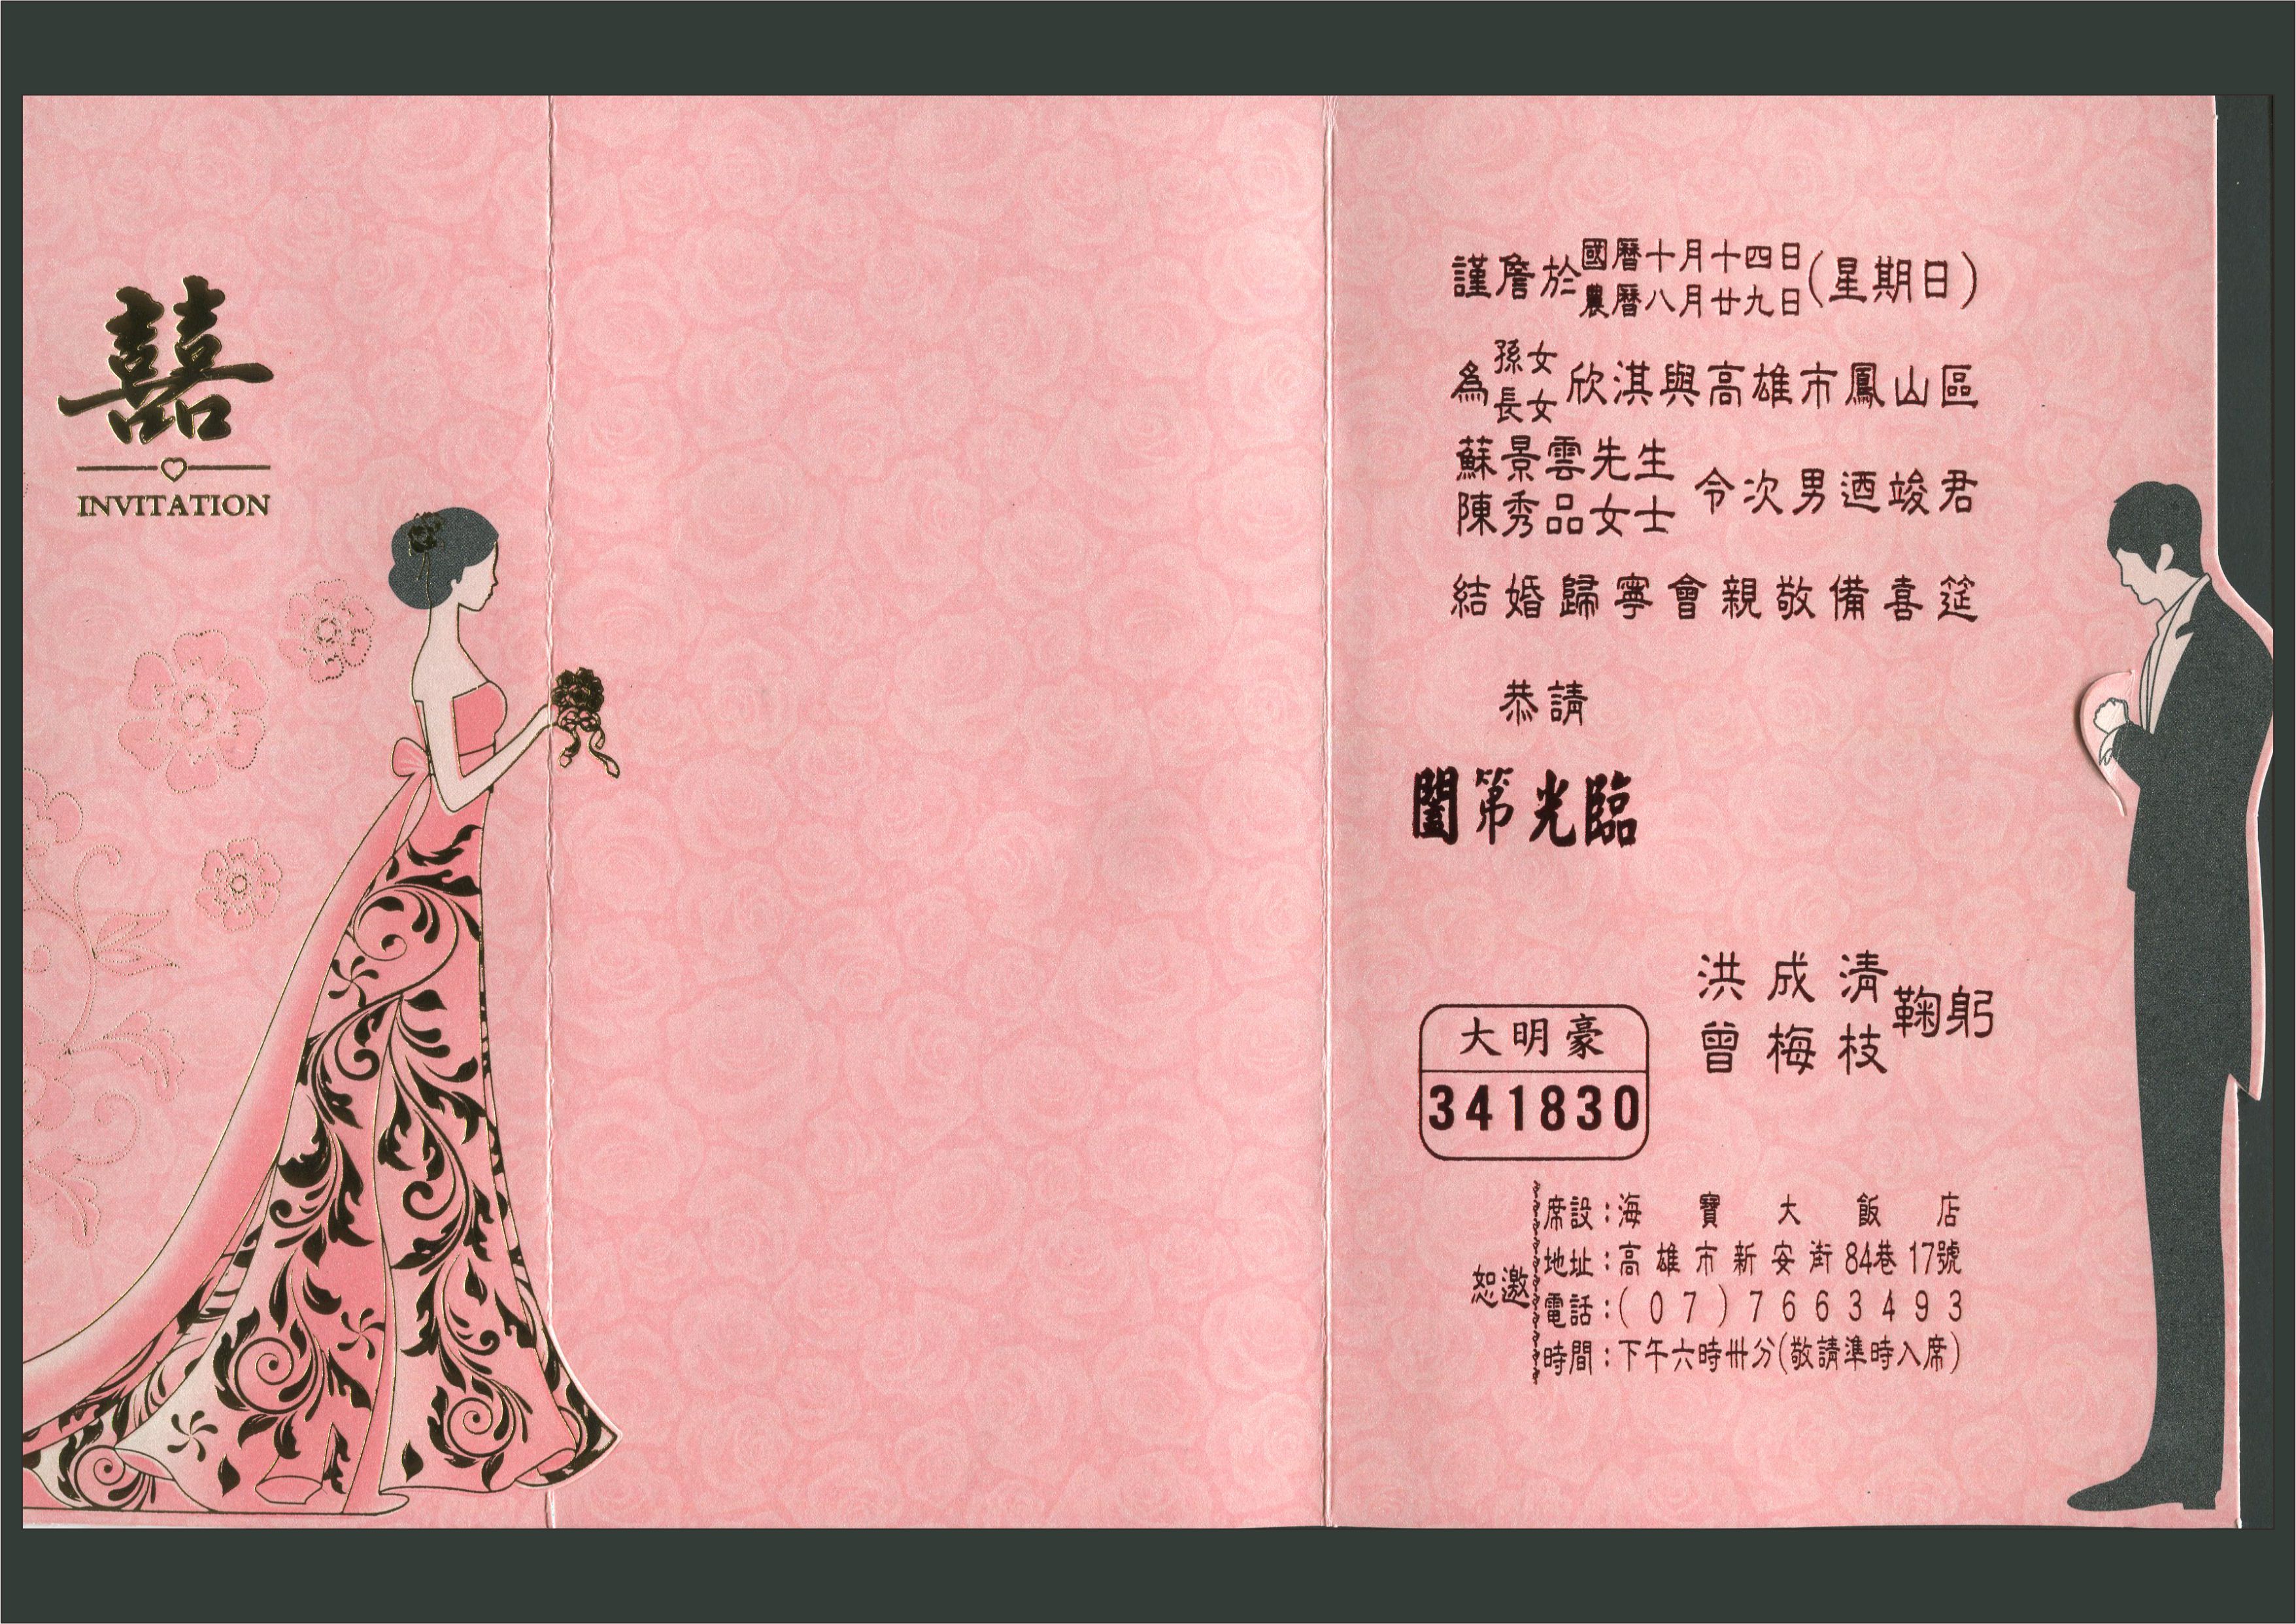 囍
INVITATION
謹詹於國曆十月十四日(星期日)
農曆八月廿九日
為孫女長女欣淇與高雄市鳳山區
蘇景雲先生
陳秀品女士
令次男迺竣君
結婚歸寧會親敬備喜筵
恭請
闔第光臨
洪成清
曾梅枝
鞠躬
大明豪
341830
恕邀
席設：海寶大飯店
地址：高雄市新安街84巷17號
電話：(07)7663493
時間：下午六時卅分(敬請準時入席)